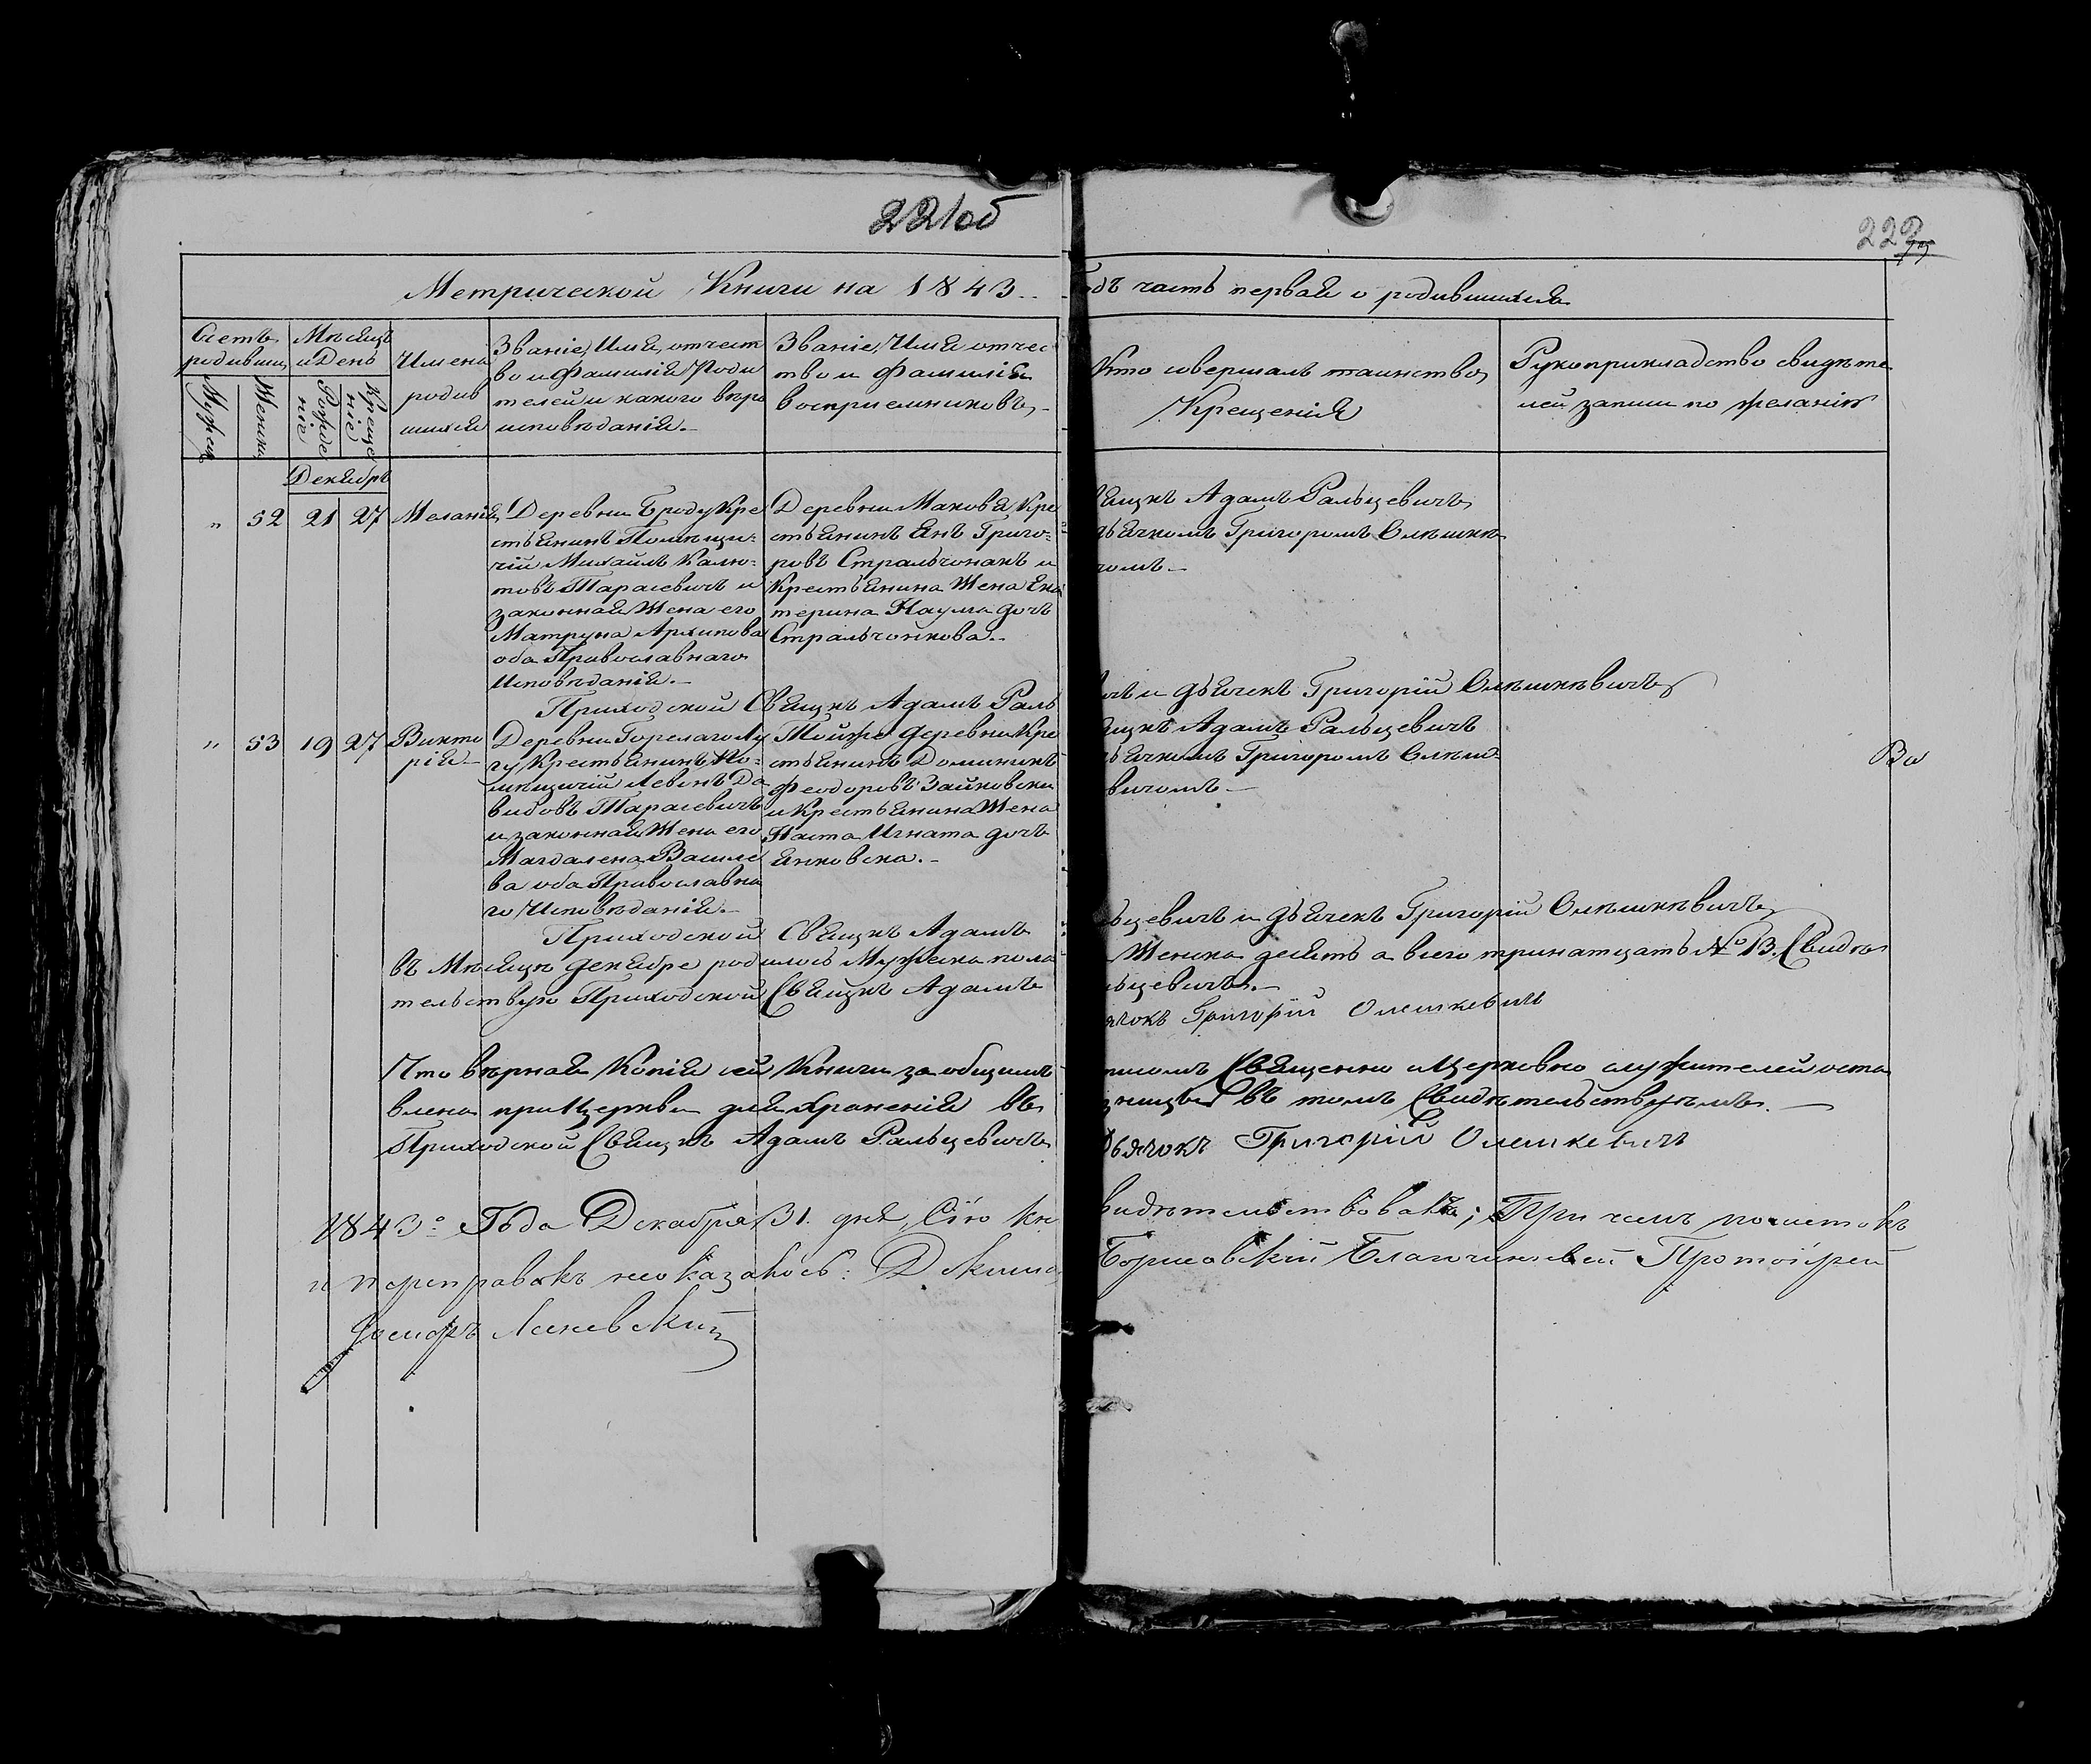 221об
222
Метрической Книги на 1843
одъ часть первая о родившихся
Счетъ родивши
Мужеск
Женска
Мѣсяцъ и День
Рожде ніе
Креще ніе
Имена родив шихся
Званіе, Имя, отчест
во и Фамилія Роди
телей и какого вѣро
исповѣданія.
Званіе, Имя отчес
тво и Фамилія
воспріемниковъ
Кто совершалъ таинство
Крещенія
Рукоприкладство свидѣте
лей записи по желанію
Декабрь
„ 52 21 27 Меланія
Деревни Броду Кре
стьянинъ Помѣщи-
чій Михаилъ
товъ Тарасевичъ и
законная Жена его
Матруна Архипова
оба Православнаго
Исповѣданія.
Деревни Макова Кре
стьянинъ Янъ Григо-
ровъ Стральчонакъ и
Крестьянина Жена Ека
терина Наума дочь
Стральчонкова.
вящнъ Адамъ Ральцевичъ
ьячкомъ Григоромъ Олѣшкѣ
чомъ
Приходской Свящнъ Адамъ Раль
чъ и дьячекъ Григорій Олѣшкѣвичъ
„ 53 19 27 Викто рія
Деревни Горелаго Лу
гу Крестьянинъ По-
мѣщичій Левонъ Да
видовъ Тарасевичъ
и законная Жена его
Магдалена Василе
ва оба Православна
го Исповѣданія.
Тойже деревни Кре
стьянинъ Доминикъ
Феодоровъ Зайковски
и Крестьянина Жена
Наста Игната дочь
Янковска.
ящнъ Адамъ Ральцевичъ
ьячкомъ Григоромъ Олѣш-
вичомъ
Во
Приходской Свящнъ Адамъ
ьцевичъ и дьячекъ Григорій Олѣшкѣвичъ
въ Мѣсяцѣ декабре родилось Мужска пола
Женска десять а всего тринатцать № 13. Свидѣ
тельствую Приходской Свящнъ Адамъ
ьцевичъ.
ячокъ Григорій Олешкевичъ
Что вѣрная Копія сей Книги за общимъ
писомъ Священно и Церковно служителей оста
влена при Церкви для храненія въ
зницѣ въ томъ Свидѣтельствуемъ.
Приходской Свящнъ Адамъ Ральцевичъ
Дьячокъ Григорій Олешкевичъ
1843го Года Декабря 31. дня, Сію кн
видѣтельствовалъ; При чемъ почистокъ
и переправокъ неоказалось:
Борисовскій Благочинный Протоіерей
Іосифъ